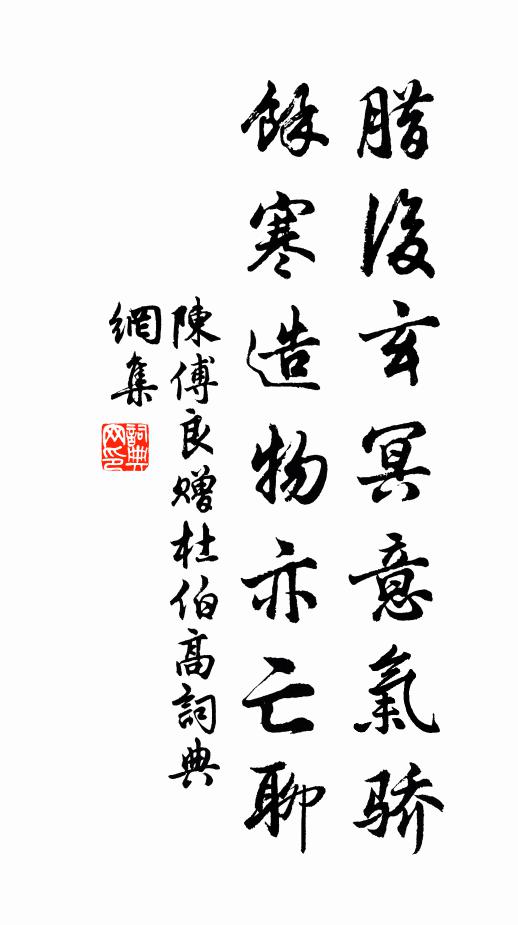 腊後玄冥意氣骄
餘寒造物亦亡聊
陳傅良赠杜伯高詞典
網集
詞典網印